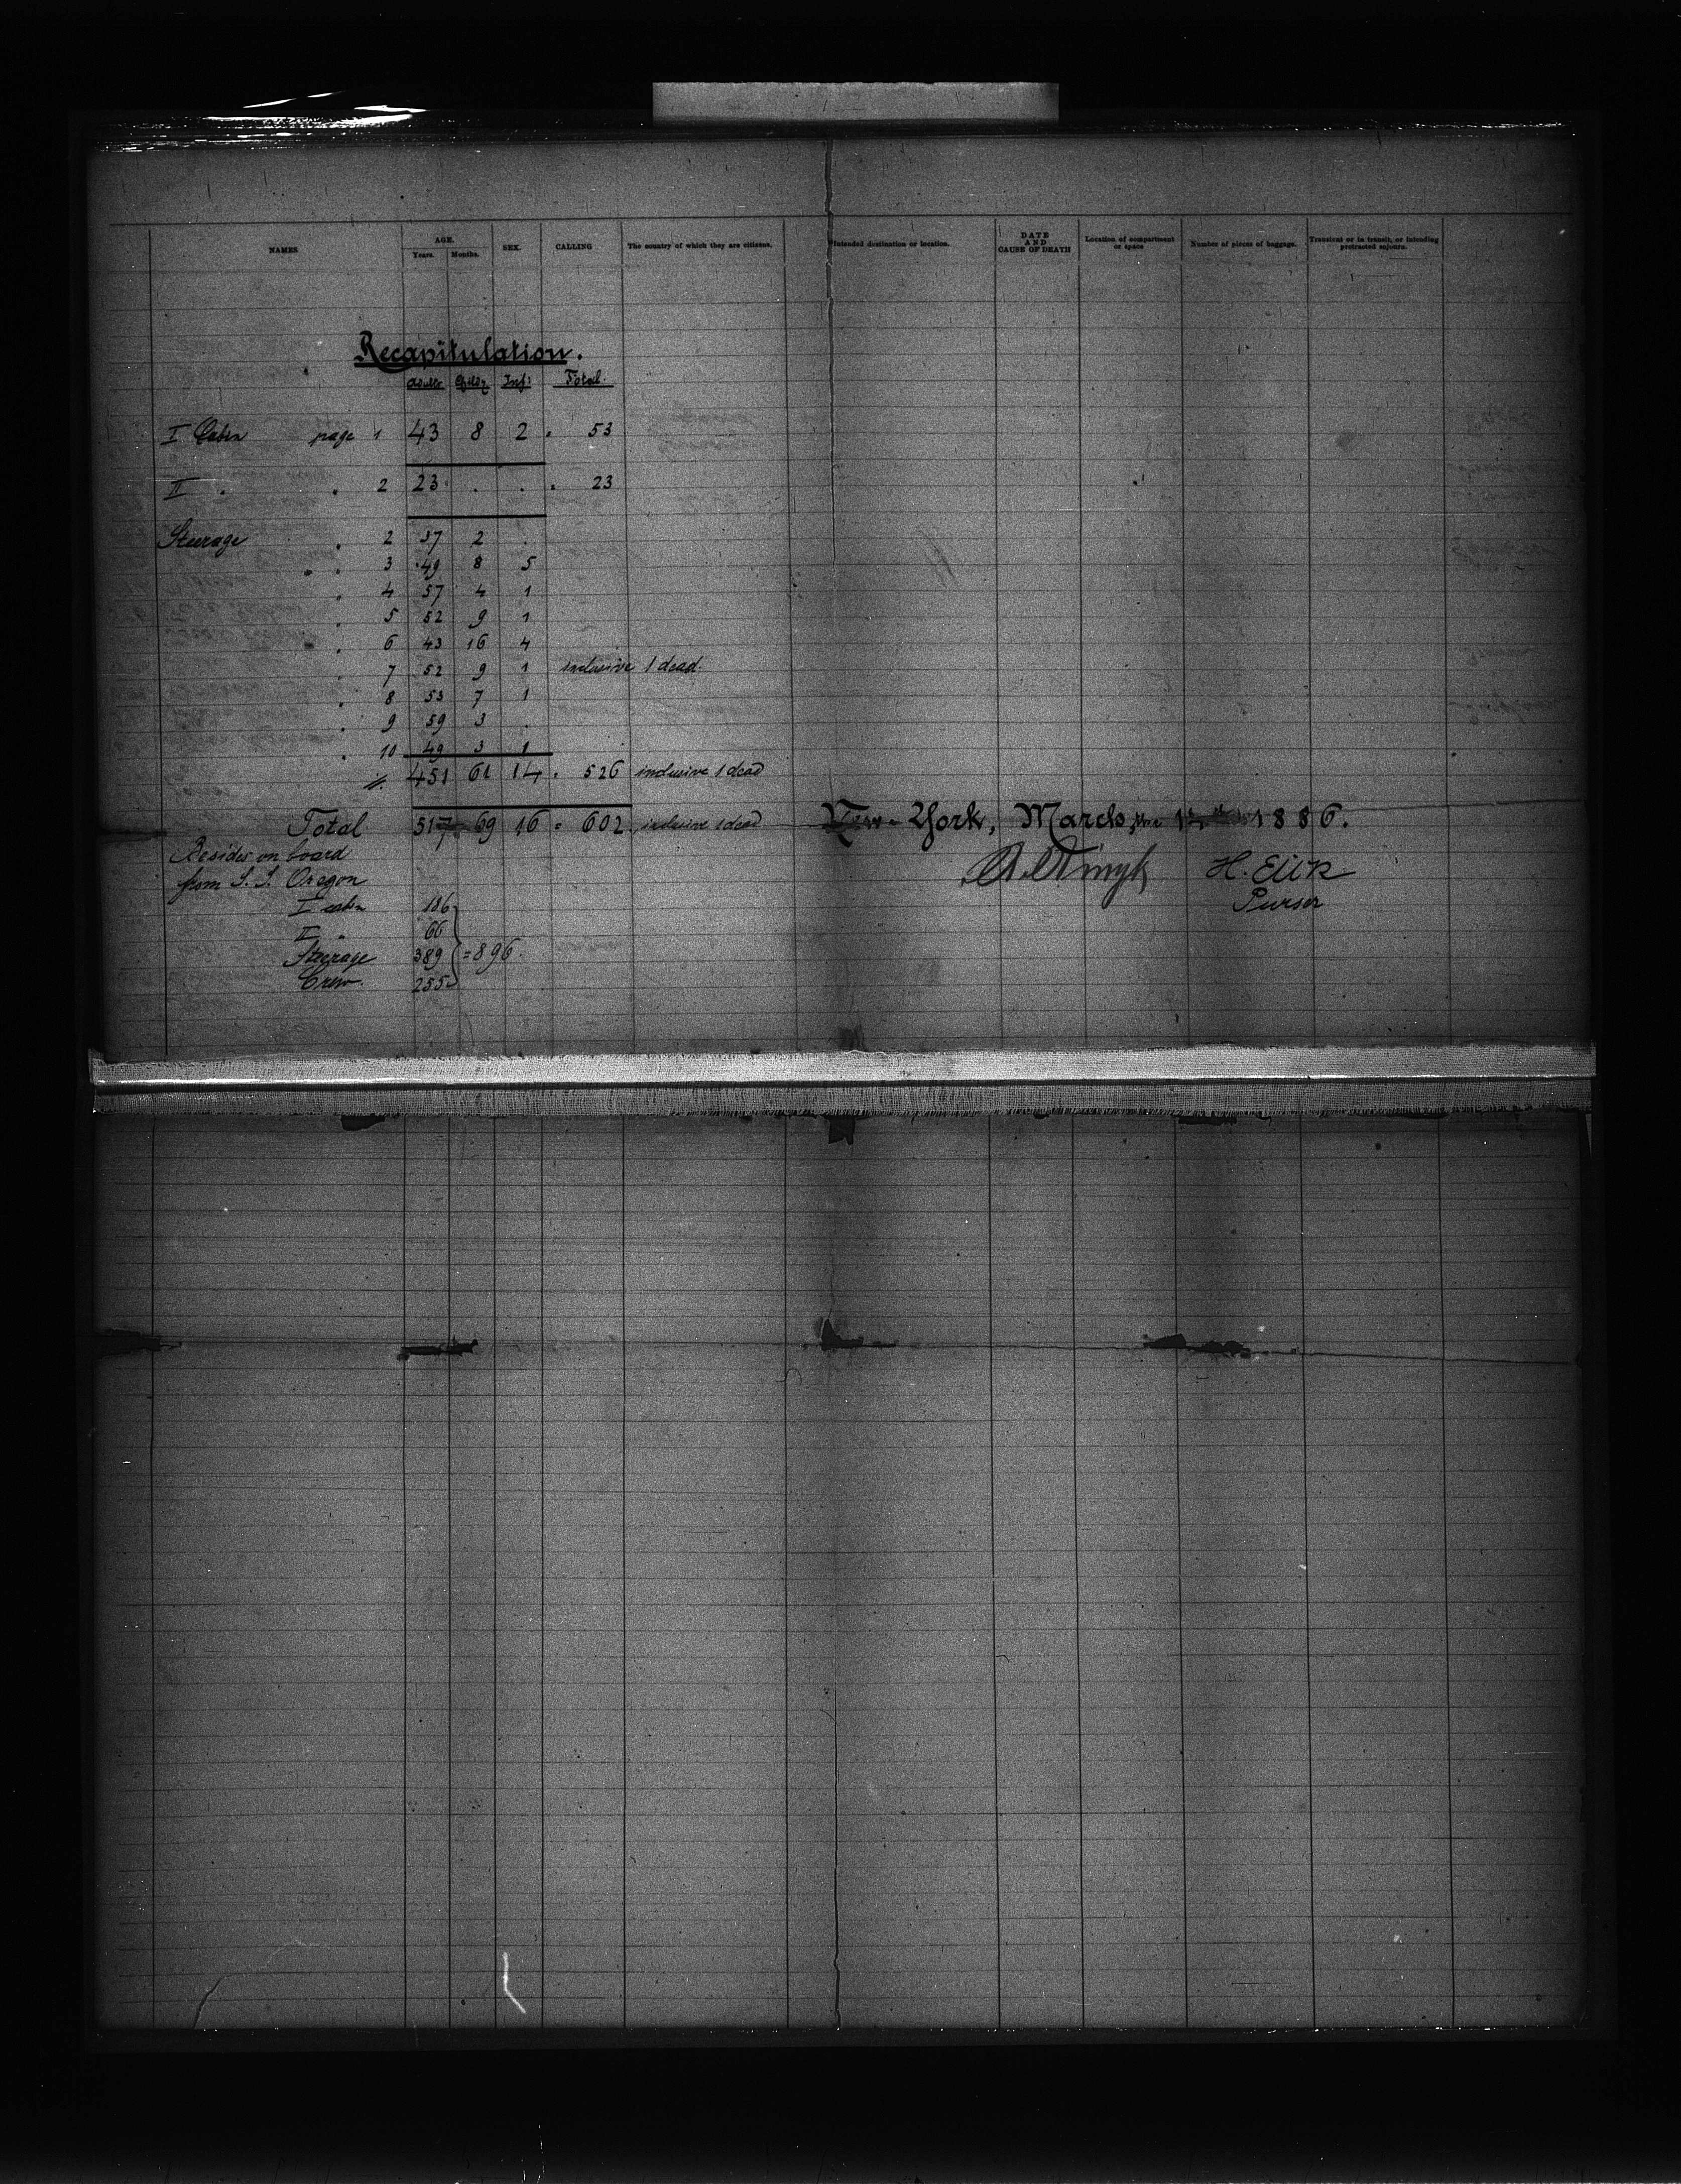 NAMES AGE. SEX. CALLING The country of which they are citizens. Intended destination or location. DATE AND CAUSE OF DEATH Location of compartment or space Number of pieces of baggage. Transient or in transit, or intending protracted sojourn.
Years. Months.
Recapitulation.
Adults Inf: Total.
I Cabin page 1 43 8 2 = 53
II " " 2 23 . . = 23
Steerage " 2 37 2 .
" 3 49 8 5
" 4 57 4 1
" 5 52 9 1
" 6 43 16 4
" 7 52 9 1 inclusive 1 dead.
" 8 53 7 1
" 9 59 3 .
" 10 49 3 1
451 61 14 = 526 inclusive 1 dead
Total 517 69 16 = 602 inclusive 1 dead New-York, March 1886.
Besides on board
from S. S. Oregon
I cabin 186
II " 66
Steerage 389 = 896.
Crew. 255
Purser